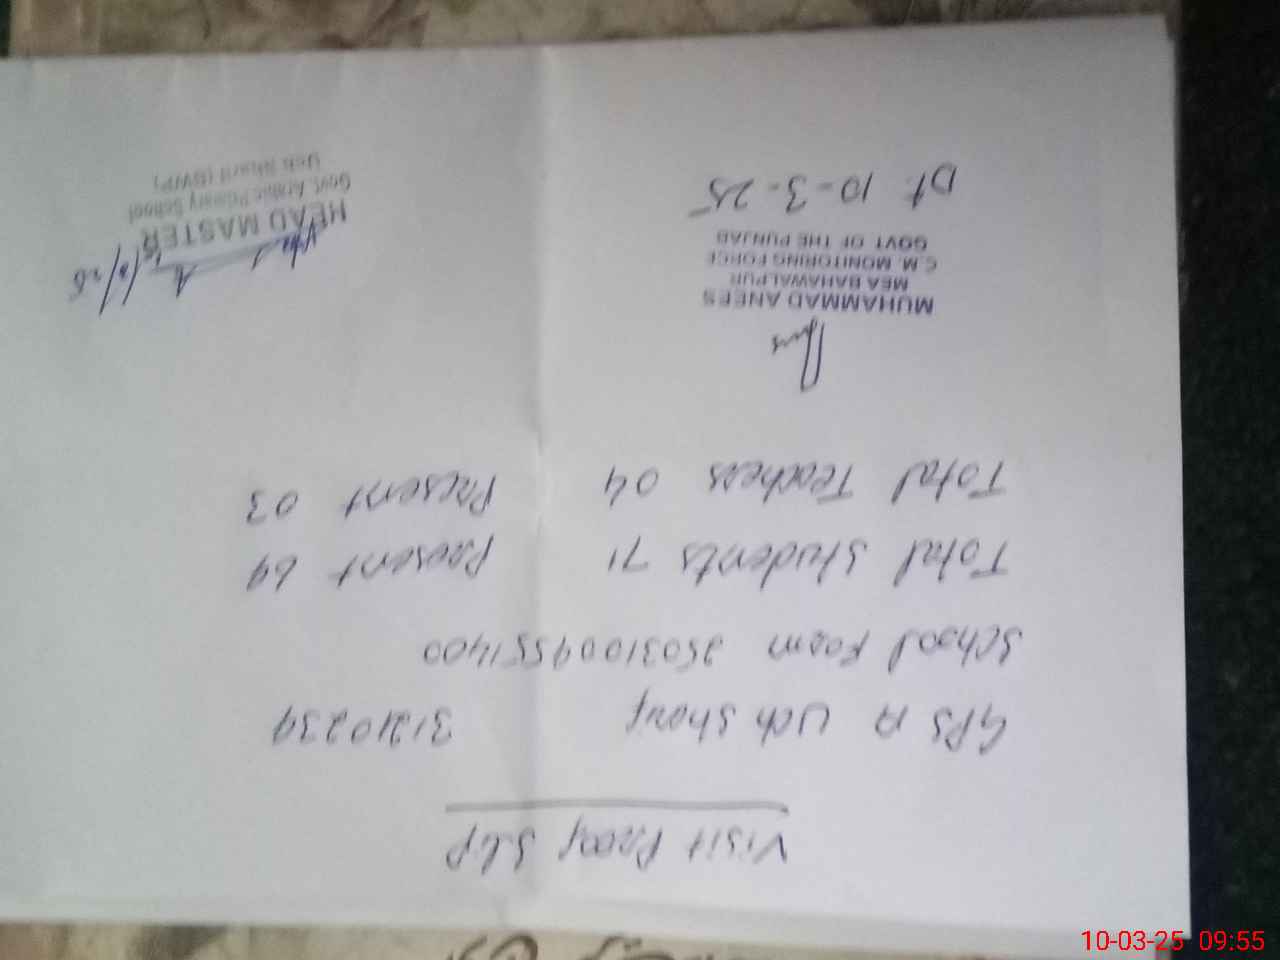 Visit Proof Slip
GPS A Uch Sharif 31210239
School Form 25031009551400
Total Students 71 Present 69
Total Teachers 04 Present 03
MUHAMMAD ANEES
MEA BAHAWALPUR
C.M. MONITORING FORCE
GOVT OF THE PUNJAB
Dt. 10-3-25
HEAD MASTER
Govt. Arabic Primary School
Uch Sharif (BWP)
10-03-25 09:55